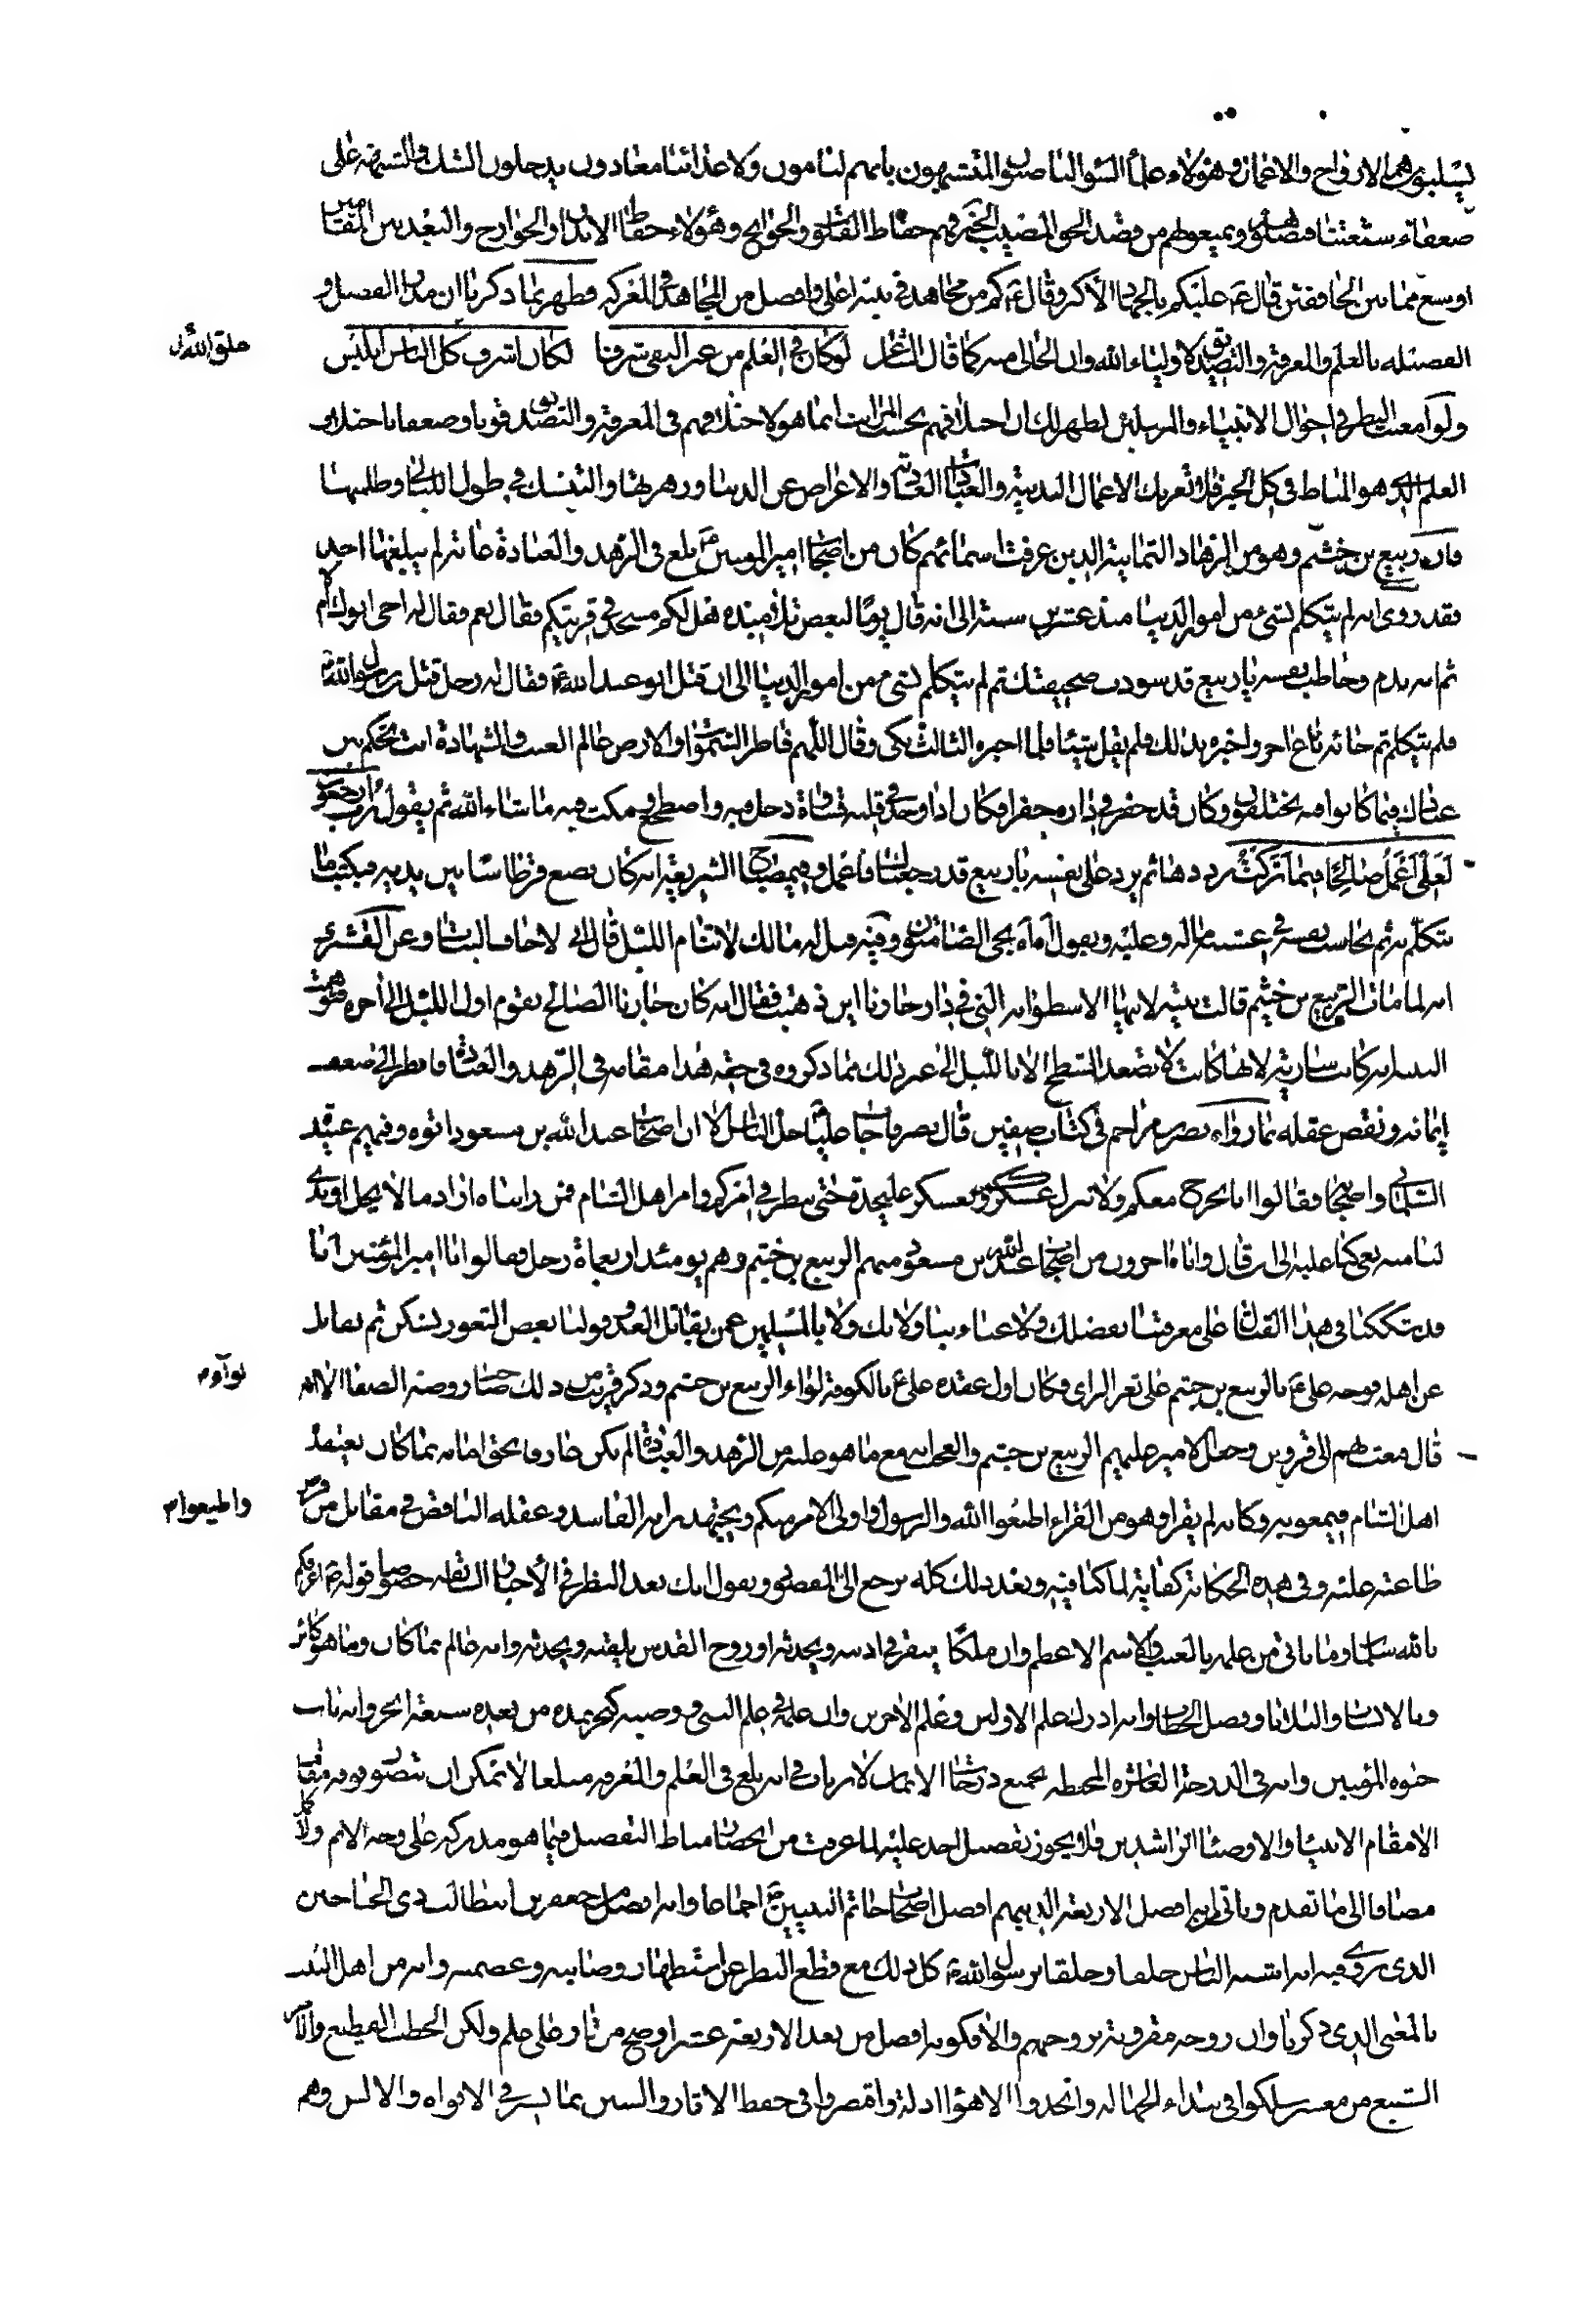 يسلبونهم الارواح والاموال وهؤلاء علماء السوء الناصبون المتشبهون بانهم لنا موالون ولاعدائنا معادون يدخلون الشك والشبهة على
ضعفاء شيعتنا فيضلونهم ويمنعونهم من قصد الحق المصيب الخ فهم حفاظ القلوب والجوانح وهؤلاء حفاظ الابدان والجوارح والبعد بين المقامين
اوسع مما بين الخافقين قال ع عليكم بالجهاد الاكبر وقال ع كم من مجاهد في بيته اعلى وافضل من المجاهد في المعركة فظهر بما ذكرنا ان مدار الفضل و
الفضيلة بالعلم والمعرفة والتصديق لاولياء الله وان الخالي منه كما قال الشاعر لو كان في العلم من غير التقى شرفا لكان اشرف كل الناس ابليس
خلق الله
ولو امعنت النظر في احوال الانبياء والمرسلين لظهر لك ان اختلافهم بحسب المراتب انما هو لاختلافهم في المعرفة والتصديق قوة وضعفا باختلاف
العلم الذي هو المناط في كل الخير فلا تغرنك الاعمال البدنية والعبادات العادية والاعراض عن الدنيا وزهرتها والتنسك في طول الليالي وظلمتها
فان ربيع بن خثيم وهو من الزهاد الثمانية الذين عرفت اسمائهم كان من اصحاب امير المومنين ع بلغ في الزهد والعبادة غاية لم يبلغها احد
فقد روى انه لم يتكلم بشيء من امور الدنيا منذ عشرين سنة الى انه قال يوما لبعض تلامذه هل لكم مسجد في قريتكم فقال نعم فقال له احي ابوك ام
ثم انه ندم وخاطب نفسه يا ربيع قد سودت صحيفتك ثم لم يتكلم بشيء من امور الدنيا الى ان قتل ابو عبد الله ع فقال له رجل قتل بن رسول الله
فلم يتكلم ثم جائه ناع اخر واخبره بذلك فلم يقل شيئا فلما اخبره الثالث بكى وقال اللهم فاطر السموات والارض عالم الغيب والشهادة انت تحكم بين
عبادك فيما كانوا فيه يختلفون وكان قد حفر في داره حفرا فكان اذا وجد في قلبه قساوة دخل فيه واضطجع ومكث فيه ما شاء الله ثم يقول رب ارجعون
لعلي اعمل صالحا فيما تركت يرددها ثم يرد على نفسه يا ربيع قد رجعناك فاعمل وفي مصباح الشريعة انه كان يضع قرطاسا بين يديه فيكتب ما
يتكلم به ثم يحاسب نفسه في عشيته ما له وعليه ويقول اه اه نجى الصامتون وفيه قيل له ما لك لا تنام الليل قال اني لاخاف البيات وعن القشيري
انه لما مات الربيع بن خثيم قالت بنية لابيها الاسطوانة التي في دار جارنا اين ذهبت فقال انه كان جارنا الصالح يقوم اول الليل الى اخره فتوهمت
البنت انه كانت سارية لانها كانت لا تصعد السطح الا بالليل الى غير ذلك مما ذكروه في حقه هذا مقامه في الزهد والعبادة فانظر الى ضعف
ايمانه ونقص عقله بما رواه نصر بن مزاحم في كتاب صفين قال نصر فاجاب عليا جل الناس الا ان اصحاب عبد الله بن مسعود اتوه وفيهم عبيدة
السلماني واصحابه فقالوا انا نخرج معكم ولا ننزل عسكركم ونعسكر على حدة حتى ننظر في امركم وامر اهل الشام فمن رايناه اراد ما لا يحل او بدى
لنا منه بغي كنا عليه الى ان قال واتاه اخرون من اصحاب عبد الله بن مسعود منهم الربيع بن خثيم وهم يومئذ اربعماة رجل فقالوا يا امير المؤمنين انا
قد شككنا في هذا القتال على معرفتنا بفضلك ولا غناء بنا ولا بك ولا بالمسلمين عمن يقاتل العدو فولنا بعض الثغور لنكن ثم نقاتل
عن اهله فوجه علي ع بالربيع بن خثيم على ثغر الري فكان اول عقده علي ع بالكوفة لواء الربيع بن خثيم وذكر قريبا من ذلك صاحب روضة الصفا الا انه
لوآء م
قال فبعثهم الى قزوين وجعل الامير عليهم الربيع بن خثيم والعجب انه مع ما هو عليه من الزهد والعبادة لم يكن عارفا بحق امامه بما كان يعتقد
اهل الشام في معوية وكانه لم يقرأ وهو من القراء اطيعوا الله والرسول واولي الامر منكم ويجتهد برايه الفاسد وعقله الناقص في مقابل من فرض
واطيعوا م
طاعته عليه وفي هذه الحكاية كفاية لما كنا فيه وبعد ذلك كله نرجع الى المقصود ونقول انك بعد النظر في الاخبار السابقة خصوصا قوله ع اعرفكم
بالله سلمان وما ياتي من علمه بالغيب والاسم الاعظم وان ملكا ينقر في اذنه ويحدثه او روح القدس يلقنه ويحدثه وانه عالم بما كان وما هو كائن
وبالانساب والبلايا وفصل الخطاب وانه ادرك علم الاولين وعلم الاخرين وان علمه في علم النبي ووصيه كبحر يمده من بعده سبعة ابحر وانه باب
حنوه المؤمنين وانه في الدرجة العاشرة المحيطة بجميع درجات الايمان لا ترتاب في انه بلغ في العلم والمعرفة مبلغا لا يمكن ان يتصور فوقه مقام
الا مقام الانبياء والاوصياء الراشدين فلا يجوز تفضيل احد عليه لما عرفت من انحصار مناط التفضيل فيما هو مدركه على وجه الاتم والاكمل
مضافا الى ما تقدم وياتي انه افضل الاربعة الذين هم افضل اصحاب خاتم النبيين ص اجماعا وانه افضل من جعفر بن ابيطالب ذي الجناحين
الذي روي فيه انه اشبه الناس خلقا وخلقا برسول الله ص كل ذلك مع قطع النظر عن استظهار وصايته وعصمته وانه من اهل البيت
بالمعنى الذي ذكرنا وان روحه مقرونة بروحهم والا فكونه افضل من بعد الاربعة عشر اوضح من نار على علم ولكن الخطب الفظيع والامر
الشنيع من معشر سلكوا في بيداء الجهالة واتخذوا الاهواء ادلة واقتصروا في حفظ الاثار والسنن بما يسير في الافواه والالسن وهم